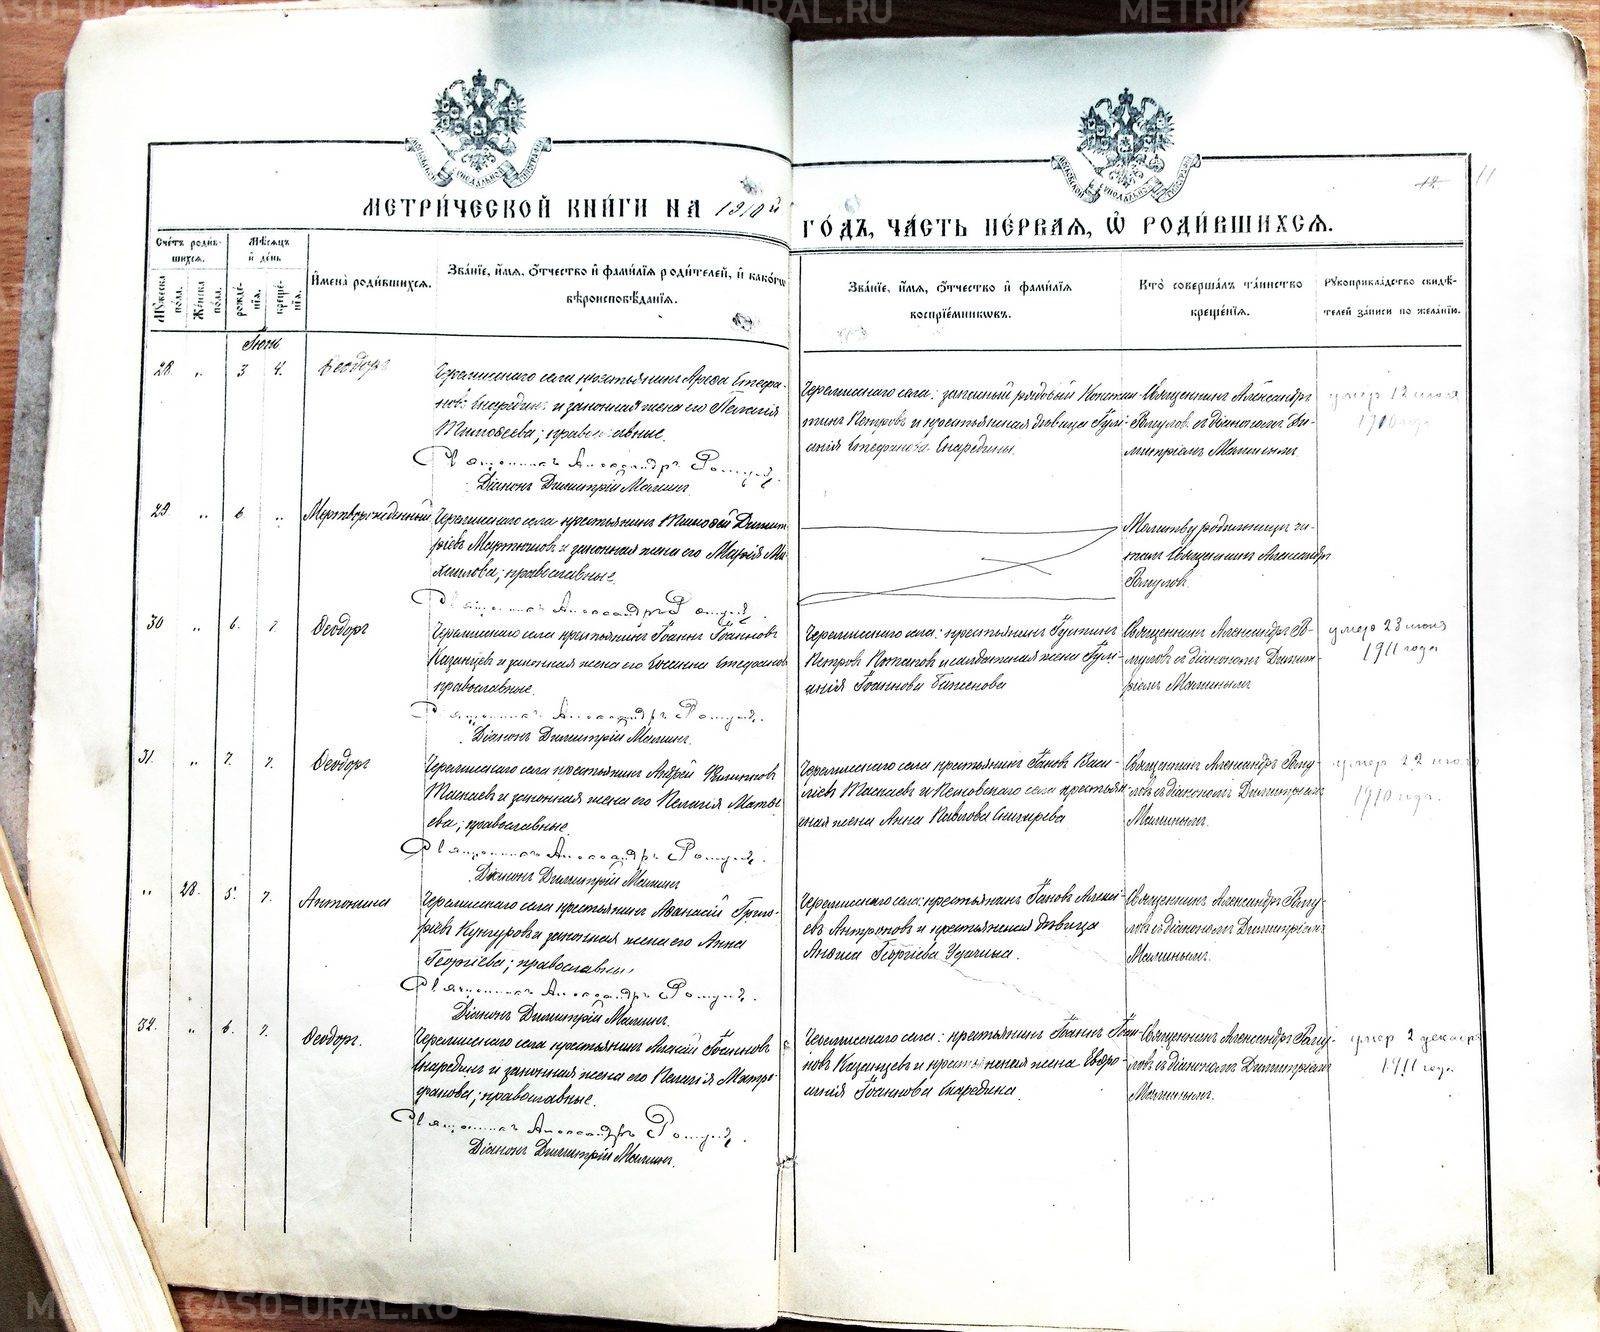 METRIKI.GASO-URAL.RU
МЕТРИ́ЧЕСКОЙ КНИ́ГИ НА 1910й
ГО́ДЪ, ЧА́СТЬ ПЕ́РВАЯ, Ѡ РОДИ́ВШИХСЯ.
11
Сче́тъ роди́в-
шихся.
Му́жеска пола.
Же́нска пола.
Мѣ́сяцъ и де́нь
рожде́нїя.
креще́нїя.
Имена̀ роди́вшихся.
Зва́нїе, и́мя, ѻ́тчество и фами́лїя роди́телей, и како́гѡ
вѣроисповѣ́данїя.
Зва́нїе, и́мя, ѻ́тчество и фами́лїя
воспрїе́мникѡвъ.
Кто̀ соверша́лъ та́инство
креще́нїя.
Рꙋкоприкла́дство свидѣ́-
телей за́писи по жела́нїю.
Іюнь
28. „ 3 4. Ѳеодоръ
Черемисскаго села крестьянинъ Стефа-
новъ Снарединъ и законная жена его Пелагія
Тимоѳеева; православные.
Священникъ Александръ
Діаконъ Димитрій Малинъ
Черемисскаго села: запасный рядовый Констан-
тинъ Петровъ и крестьянская дѣвица Іулі-
анія Стефанова Снаредины.
Священникъ Александръ
съ діакономъ Ди-
митріемъ Малинымъ
умер 12 июля
1910 года
29. „ 6. „ Мертворожденный
Черемисскаго села крестьянинъ Тимоѳей Димит-
ріевъ Мартюшовъ и законная жена его Марія Ми-
хаилова; православные.
Священникъ Александръ
Молитву родильницѣ чи-
талъ Священникъ Александръ
30 „ 6. 7. Ѳеодоръ
Черемисскаго села крестьянинъ Іоаннъ Іоанновъ
Казанцевъ и законная жена его Стефанова
православные.
Священникъ Александръ
Діаконъ Димитрій Малинъ.
Черемисскаго села: крестьянинъ
Петровъ и солдатская жена Іулі-
анія Іоаннова Баженова
Священникъ Александръ
съ діакономъ Димит-
ріемъ Малинымъ
умер 23 июня
1911 года
31. „ 7. 7. Ѳеодоръ
Черемисскаго села крестьянинъ Андрей
и законная жена его Пелагія Матѳ-
ева; православные.
Священникъ Александръ
Діаконъ Димитрій Малинъ
Черемисскаго села крестьянинъ Іаковъ Васи-
ліевъ и села крестьян-
ская жена Анна Павлова Снигирева
Священникъ Александръ
съ діакономъ Димитріемъ
Малинымъ.
умер 22 июля
1910 года.
„ 28. 5. 7. Антонина
Черемисскаго села крестьянинъ Аѳанасій Григо-
ріевъ Кунгуровъ и законная жена его Анна
Георгіева; православные
Священникъ Александръ
Діаконъ Димитрій Малинъ.
Черемисскаго села: крестьянинъ Іаковъ Алексі-
евъ Антроповъ и крестьянская дѣвица
Георгіева
Священникъ Александръ
съ діакономъ Димитріемъ
Малинымъ.
32. „ 6. 7. Ѳеодоръ.
Черемисскаго села крестьянинъ Алексій Іоанновъ
Снарединъ и законная жена его Пелагія Митро-
фанова; православные.
Священникъ Александръ
Діаконъ Димитрій Малинъ.
Черемисскаго села: крестьянинъ Іоаннъ Іоан-
новъ Казанцевъ и крестьянская жена Евдо-
Іоаннова Снаредина.
Священникъ Александръ
съ діакономъ Димитріемъ
Малинымъ.
умер 2 декабр
1911 года
METRIKI.GASO-URAL.RU